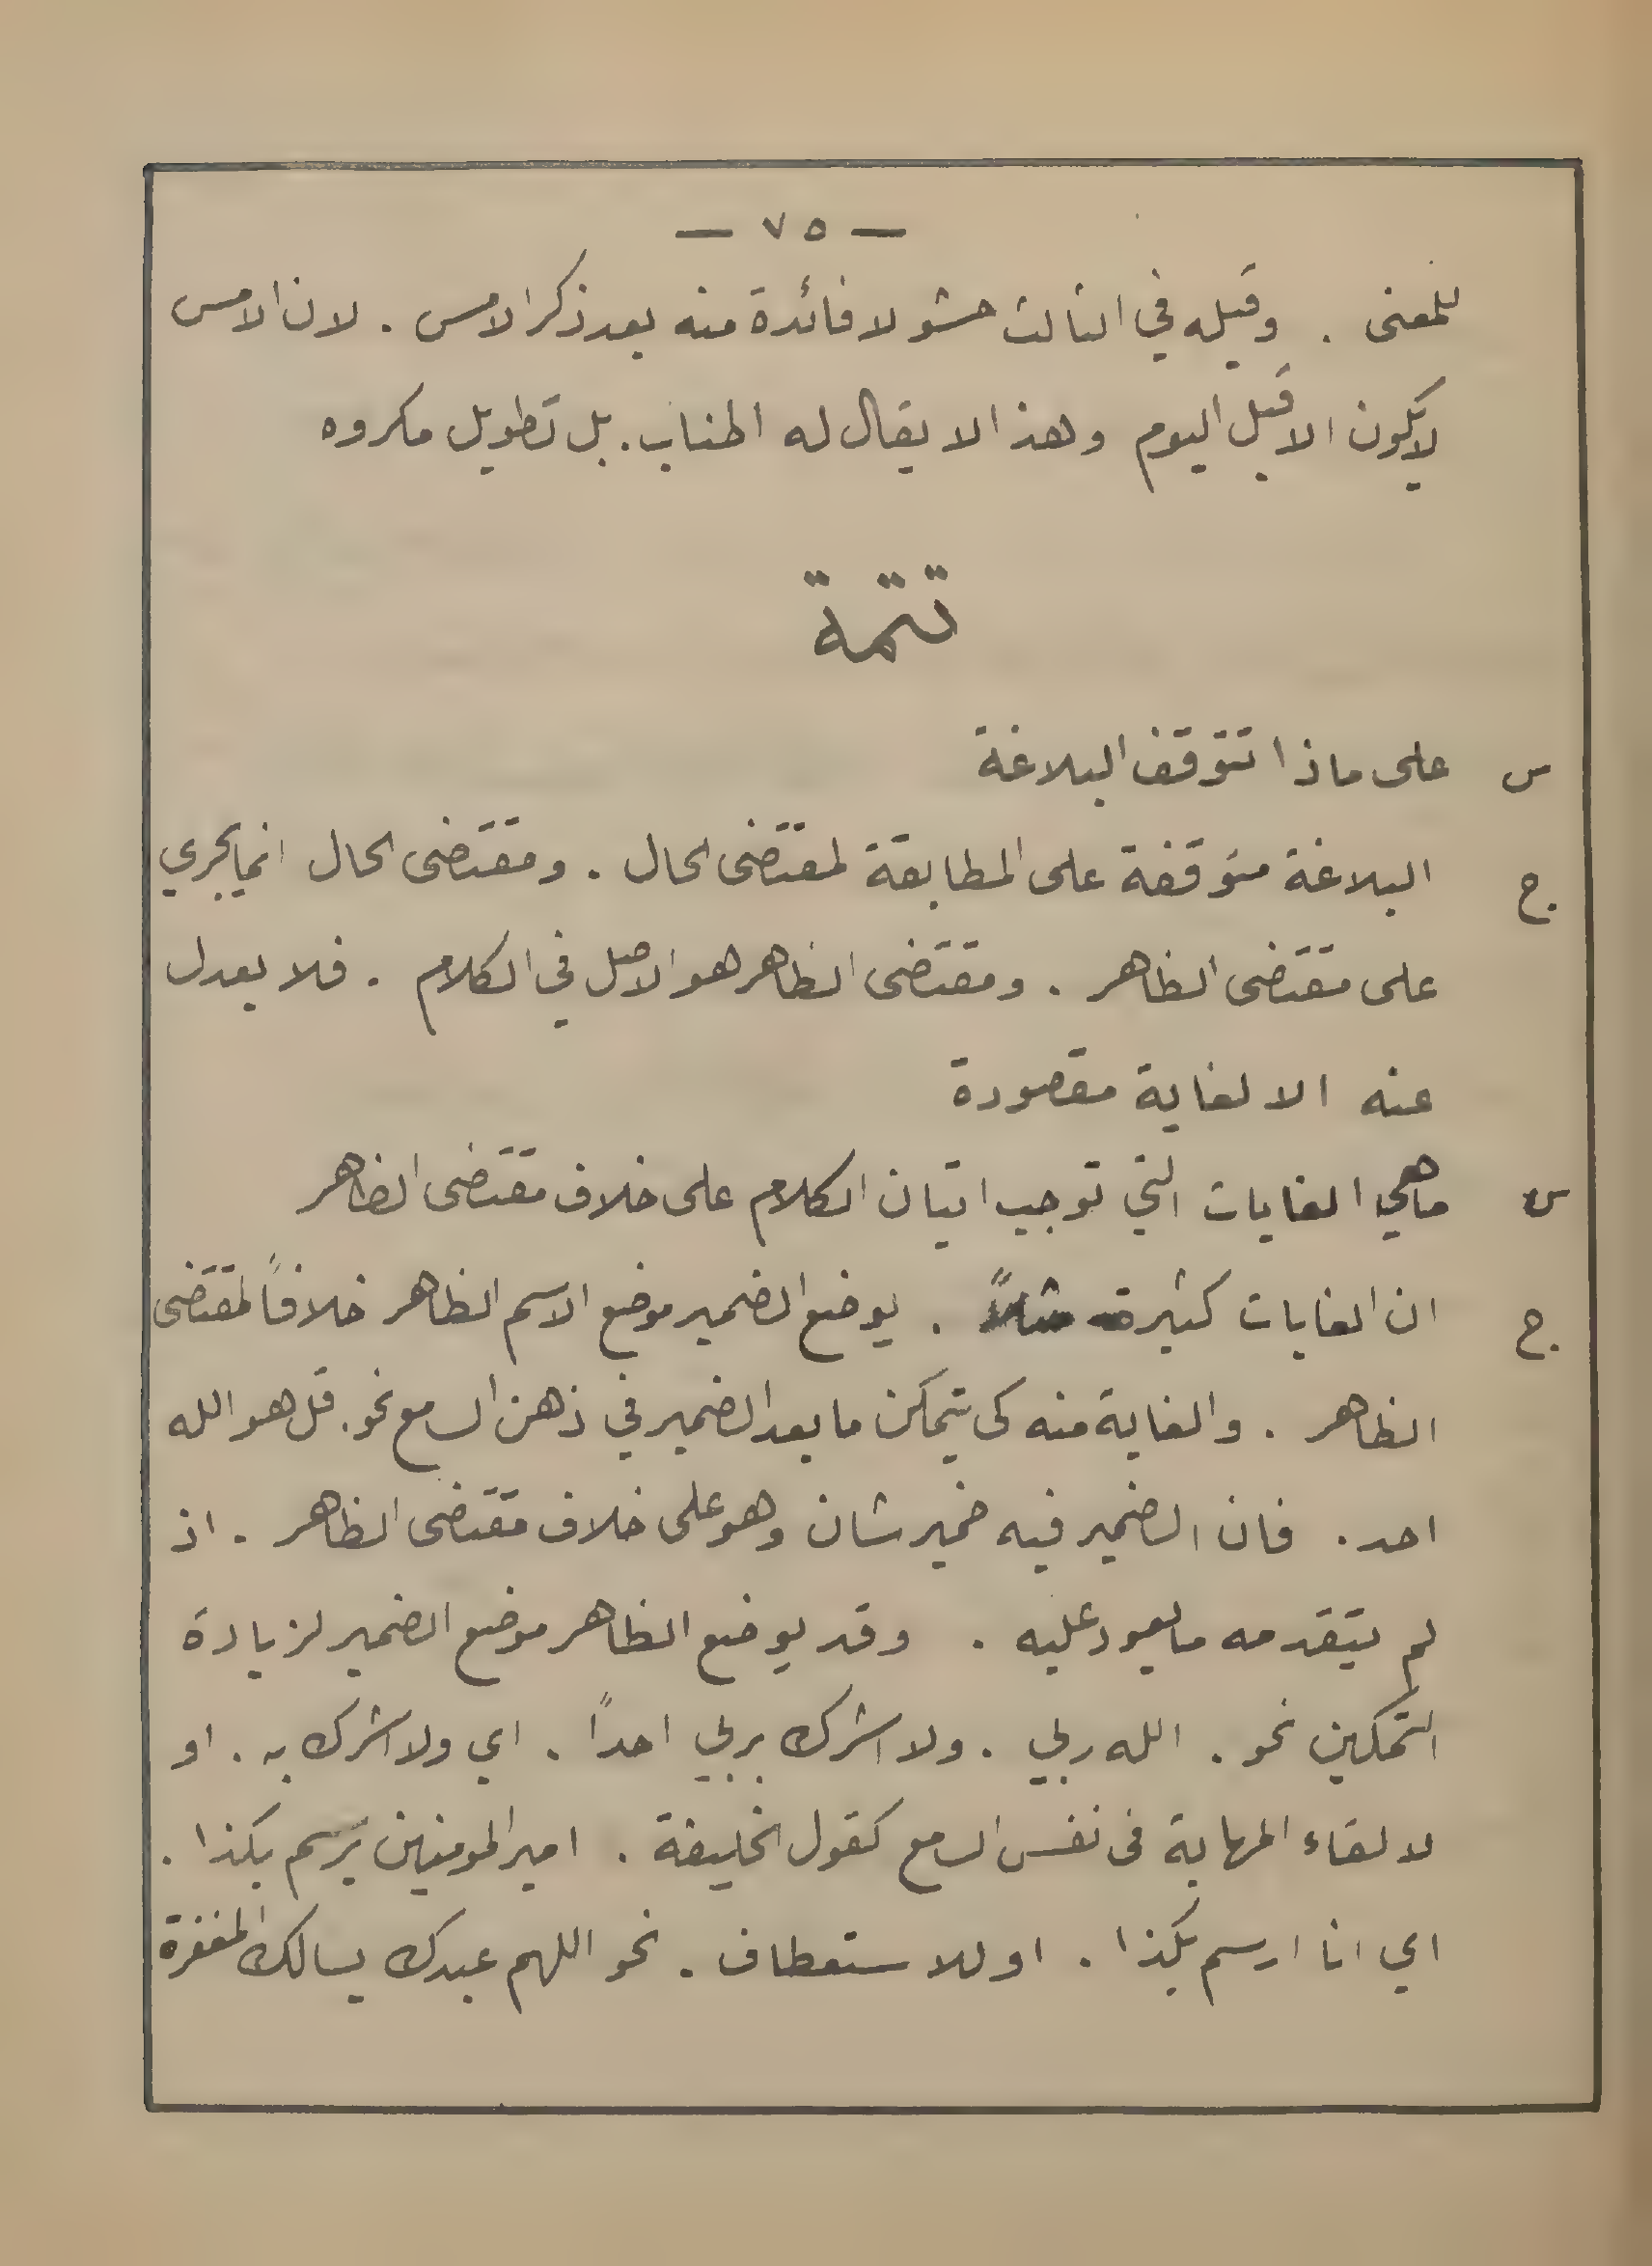 — ٧٥ —
للمعنى . وقبله في الثالث حشو لا فائدة منه بعد ذكر الامس . لان الامس
لا يكون الا قبل اليوم وهذا لا يقال له اطناب . بل تطويل مكروه
تتمة
س على ماذا تتوقف البلاغة
ج البلاغة متوقفة على المطابقة لمقتضى الحال . ومقتضى الحال انما يجري
على مقتضى الظاهر . ومقتضى الظاهر هو الاصل في الكلام . فلا يعدل
عنه الا لغاية مقصودة
س ما هي الغايات التي توجب اتيان الكلام على خلاف مقتضى الظاهر
ج ان الغايات كثيرة مثلاً . يوضع الضمير موضع الاسم الظاهر خلافاً لمقتضى
الظاهر . والغاية منه كى يتمكن ما بعد الضمير في ذهن السامع نحو . قل هو الله
احد . فان الضمير فيه ضمير شان وهو على خلاف مقتضى الظاهر . اذ
لم يتقدمه ما يعود عليه . وقد يوضع الظاهر موضع الضمير لزيادة
التمكين نحو . الله ربي . ولا اشرك بربي احداً . اي ولا اشرك به . او
لالقاء المهابة فى نفس السامع كقول الخليفة . امير المومنين يرسم بكذا .
اي انا ارسم بكذا . او للاستعطاف . نحو اللهم عبدك يسالك المغفرة